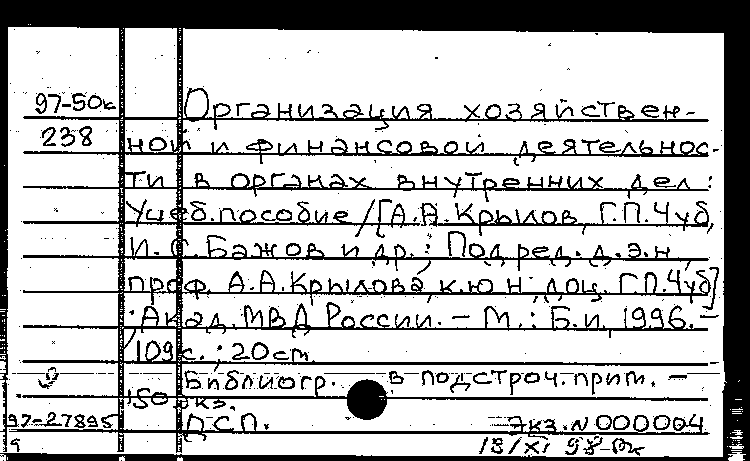 97-50к Организация хозяйствен-
238 ной и финансовой деятельнос-
ти в органах внутренних дел:
Учеб. пособие / [А.А. Крылов, Г.П. Чуб,
И. С. Бажов и др.; Под ред. д.э.н.,
проф. А.А. Крылова, к.ю.н. доц. Г.П. Чуб]
; Акад. МВД России. – М.: Б.и, 1996. –
109 с.; 20 cm.
Библиогр. в подстроч. прим. –
150 экз.
97-27895 ДСП. Экз. N 000004
9 13/XI 98